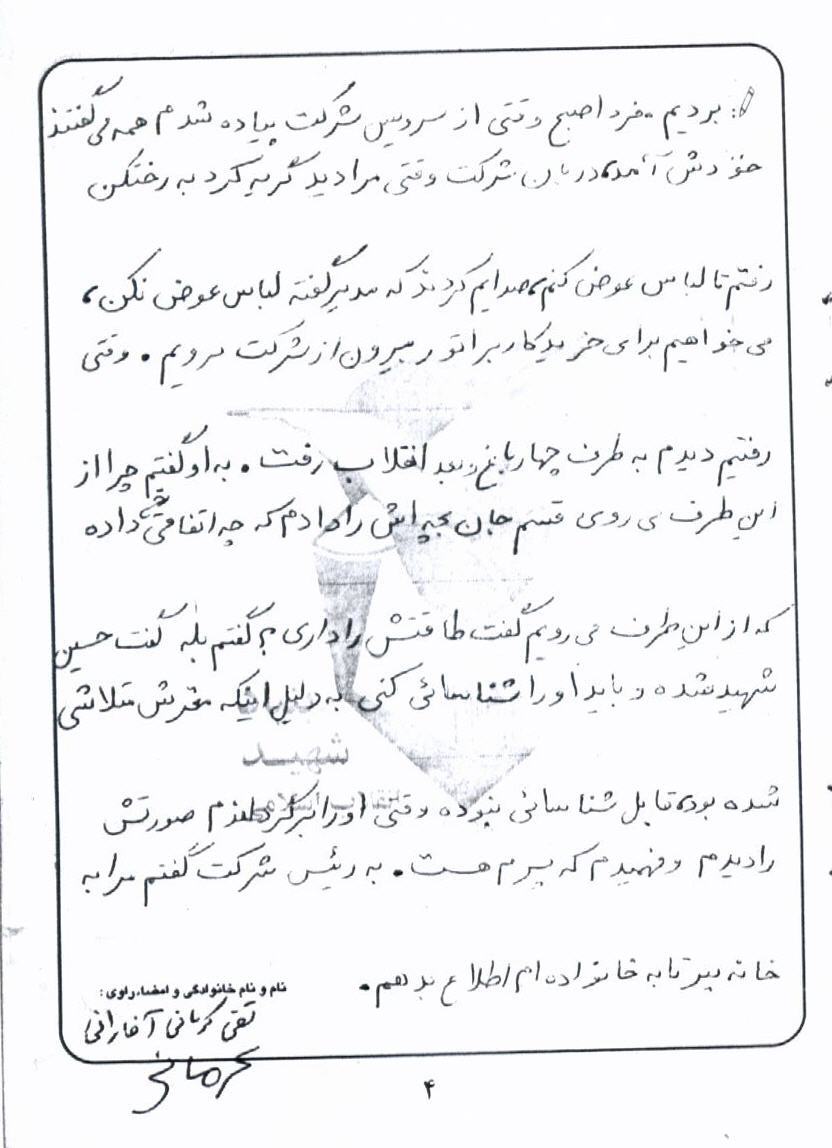 : بردیم . فردا صبح وقتی از سرویس شرکت پیاده شدم همه می گفتند
خودش آمد، دربان شرکت وقتی مرا دید گریه کرد به رختکن
رفتم تا لباس عوض کنم، صدایم کردند که مدیر گفته لباس عوض نکن،
می خواهیم برای خرید کاربراتور بیرون از شرکت برویم . وقتی
رفتیم دیدم به طرف چهارباغ و بعد انقلاب رفت . به او گفتم چرا از
این طرف می روی قسم جان بچه اش را دادم که چه اتفاقی داده
که از این طرف می رویم گفت طاقتش را داری ؟ گفتم بله گفت حسین
شهید شده و باید او را شناسائی کنی به دلیل اینکه مغزش متلاشی
شده بود، قابل شناسائی نبوده وقتی او را صورتش
را دیدم و فهمیدم که پسرم هست . به رئیس شرکت گفتم مرا به
خانه ببر تا به خانواده ام اطلاع بدهم .
نام و نام خانوادگی و امضاء راوی :
تقی کرمانی آفارانی
کرمانی
شهید
۴